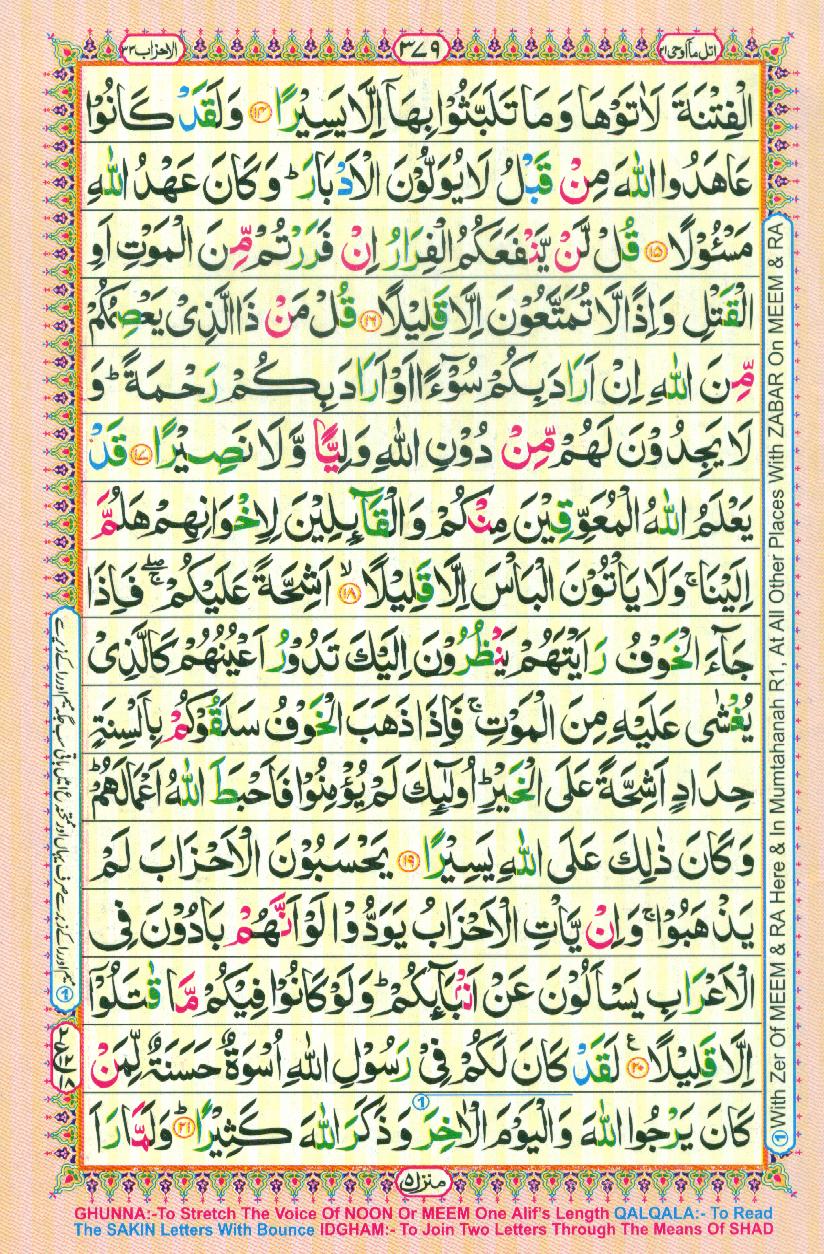 اتل مآ اوحی ۲۱
۳۷۹
الاحزاب ۳۳
الْفِتْنَةَ لَاٰتَوْهَا وَمَا تَلَبَّثُوْا بِهَاۤ اِلَّا يَسِيْرًا ۝۱۴ وَلَقَدْ كَانُوْا
عَاهَدُوا اللّٰهَ مِنْ قَبْلُ لَا يُوَلُّوْنَ الْاَدْبَارَ ؕ وَكَانَ عَهْدُ اللّٰهِ
مَسْـُٔوْلًا ۝۱۵ قُلْ لَّنْ يَّنْفَعَكُمُ الْفِرَارُ اِنْ فَرَرْتُمْ مِّنَ الْمَوْتِ اَوِ
الْقَتْلِ وَاِذًا لَّا تُمَتَّعُوْنَ اِلَّا قَلِيْلًا ۝۱۶ قُلْ مَنْ ذَا الَّذِىْ يَعْصِمُكُمْ
مِّنَ اللّٰهِ اِنْ اَرَادَ بِكُمْ سُوْٓءًا اَوْ اَرَادَ بِكُمْ رَحْمَةً ؕ وَ
لَا يَجِدُوْنَ لَهُمْ مِّنْ دُوْنِ اللّٰهِ وَلِيًّا وَّلَا نَصِيْرًا ۝۱۷ قَدْ
يَعْلَمُ اللّٰهُ الْمُعَوِّقِيْنَ مِنْكُمْ وَالْقَآٮِٕلِيْنَ لِاِخْوَانِهِمْ هَلُمَّ
اِلَيْنَا ۚ وَلَا يَاْتُوْنَ الْبَاْسَ اِلَّا قَلِيْلًا ۙ‏۝۱۸ اَشِحَّةً عَلَيْكُمْ ۖۚ فَاِذَا
جَآءَ الْخَوْفُ رَاَيْتَهُمْ يَنْظُرُوْنَ اِلَيْكَ تَدُوْرُ اَعْيُنُهُمْ كَالَّذِىْ
يُغْشٰى عَلَيْهِ مِنَ الْمَوْتِ ۚ فَاِذَا ذَهَبَ الْخَوْفُ سَلَقُوْكُمْ بِاَلْسِنَةٍ
حِدَادٍ اَشِحَّةً عَلَى الْخَيْرِ ؕ اُولٰٓٮِٕكَ لَمْ يُؤْمِنُوْا فَاَحْبَطَ اللّٰهُ اَعْمَالَهُمْ ؕ
وَكَانَ ذٰلِكَ عَلَى اللّٰهِ يَسِيْرًا ۝۱۹ يَحْسَبُوْنَ الْاَحْزَابَ لَمْ
يَذْهَبُوْا ۚ وَاِنْ يَّاْتِ الْاَحْزَابُ يَوَدُّوْا لَوْ اَنَّهُمْ بَادُوْنَ فِى
الْاَعْرَابِ يَسْاَلُوْنَ عَنْ اَنْۢبَآٮِٕكُمْ ؕ وَلَوْ كَانُوْا فِيْكُمْ مَّا قٰتَلُوْۤا
اِلَّا قَلِيْلًا ۝۲۰ع لَقَدْ كَانَ لَكُمْ فِىْ رَسُوْلِ اللّٰهِ اُسْوَةٌ حَسَنَةٌ لِّمَنْ
كَانَ يَرْجُوا اللّٰهَ وَالْيَوْمَ الْاٰخِرَ وَذَكَرَ اللّٰهَ كَثِيْرًا ؕ‏۝۲۱ وَلَمَّا رَاَ
①
① With Zer Of MEEM & RA Here & In Mumtahanah R1, At All Other Places With ZABAR On MEEM & RA
منزل ۵
GHUNNA:-To Stretch The Voice Of NOON Or MEEM One Alif's Length QALQALA:- To Read
The SAKIN Letters With Bounce IDGHAM:- To Join Two Letters Through The Means Of SHAD